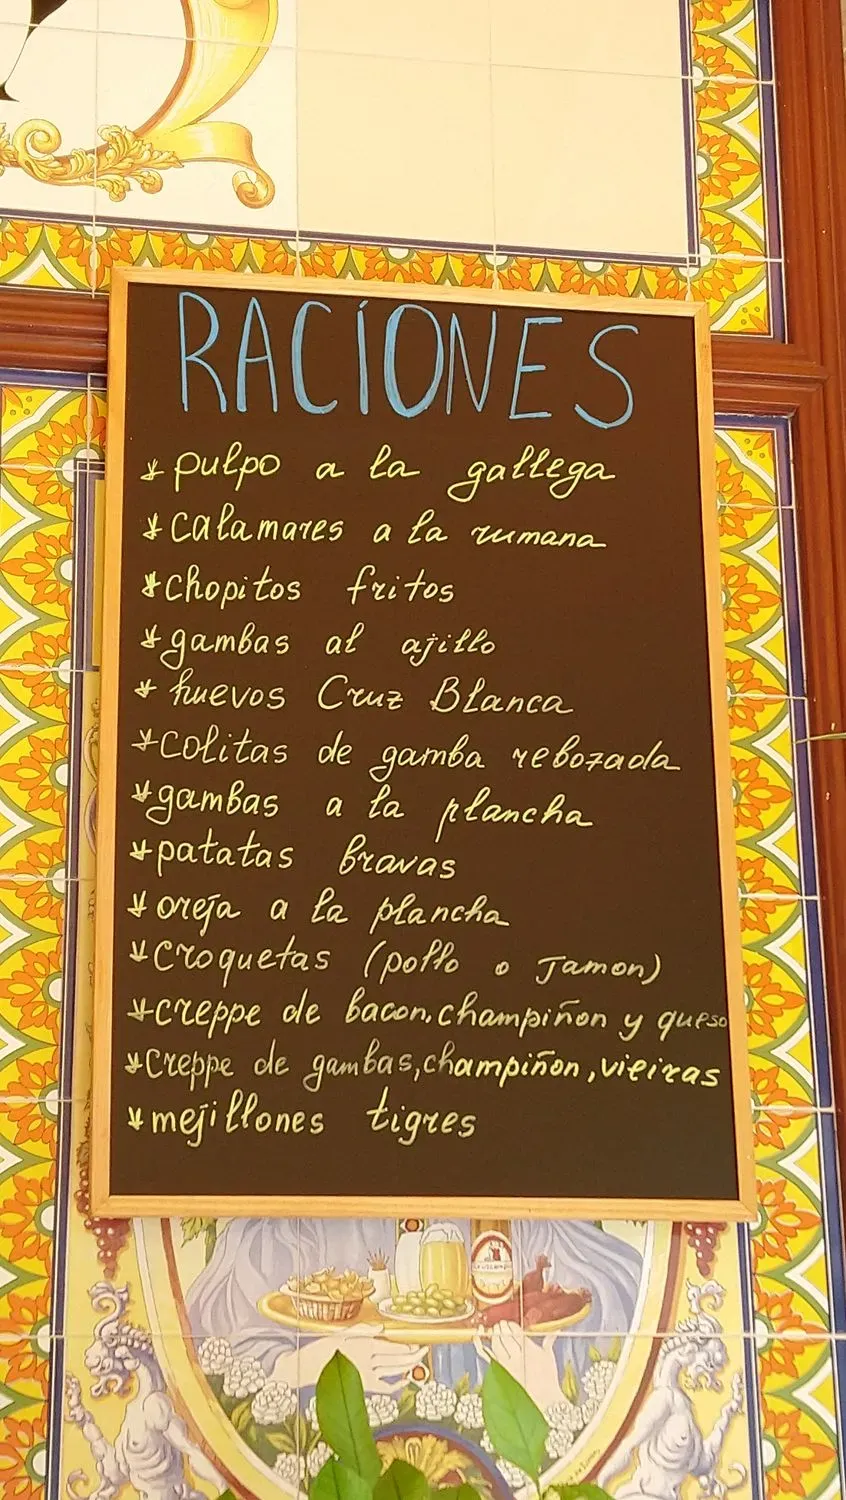 RACIONES
* pulpo a la gallega
* calamares a la rumana
* chopitos fritos
* gambas al ajillo
* huevos Cruz Blanca
* colitas de gamba rebozada
* gambas a la plancha
* patatas bravas
* oreja a la plancha
* croquetas (pollo o jamon)
* creppe de bacon, champiñon y queso
* creppe de gambas, champiñon, vieiras
* mejillones tigres